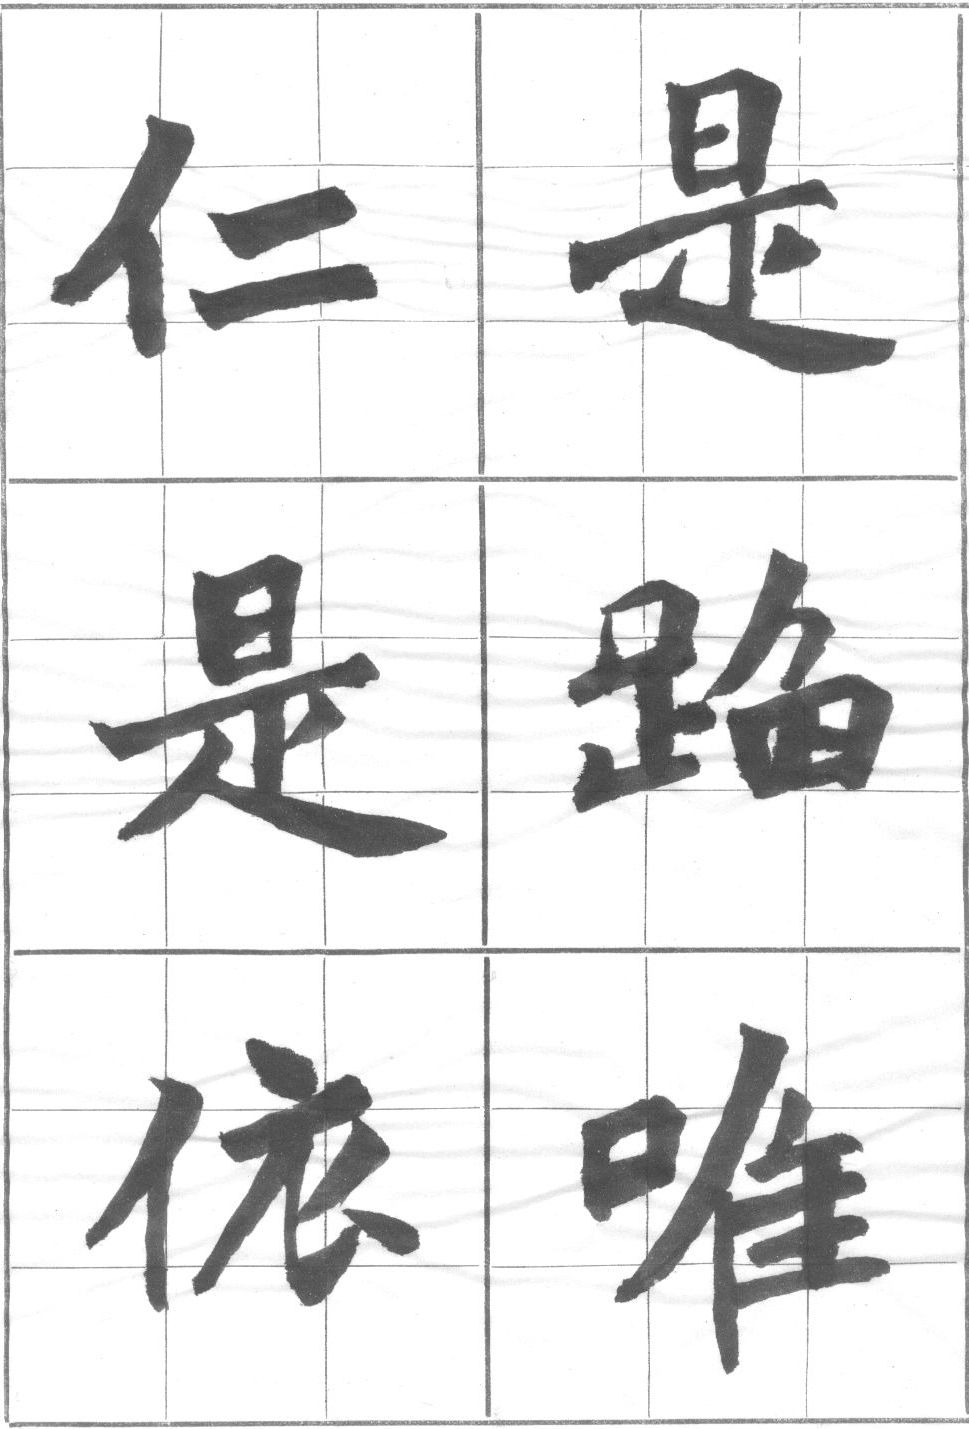 是蹈唯
仁是依